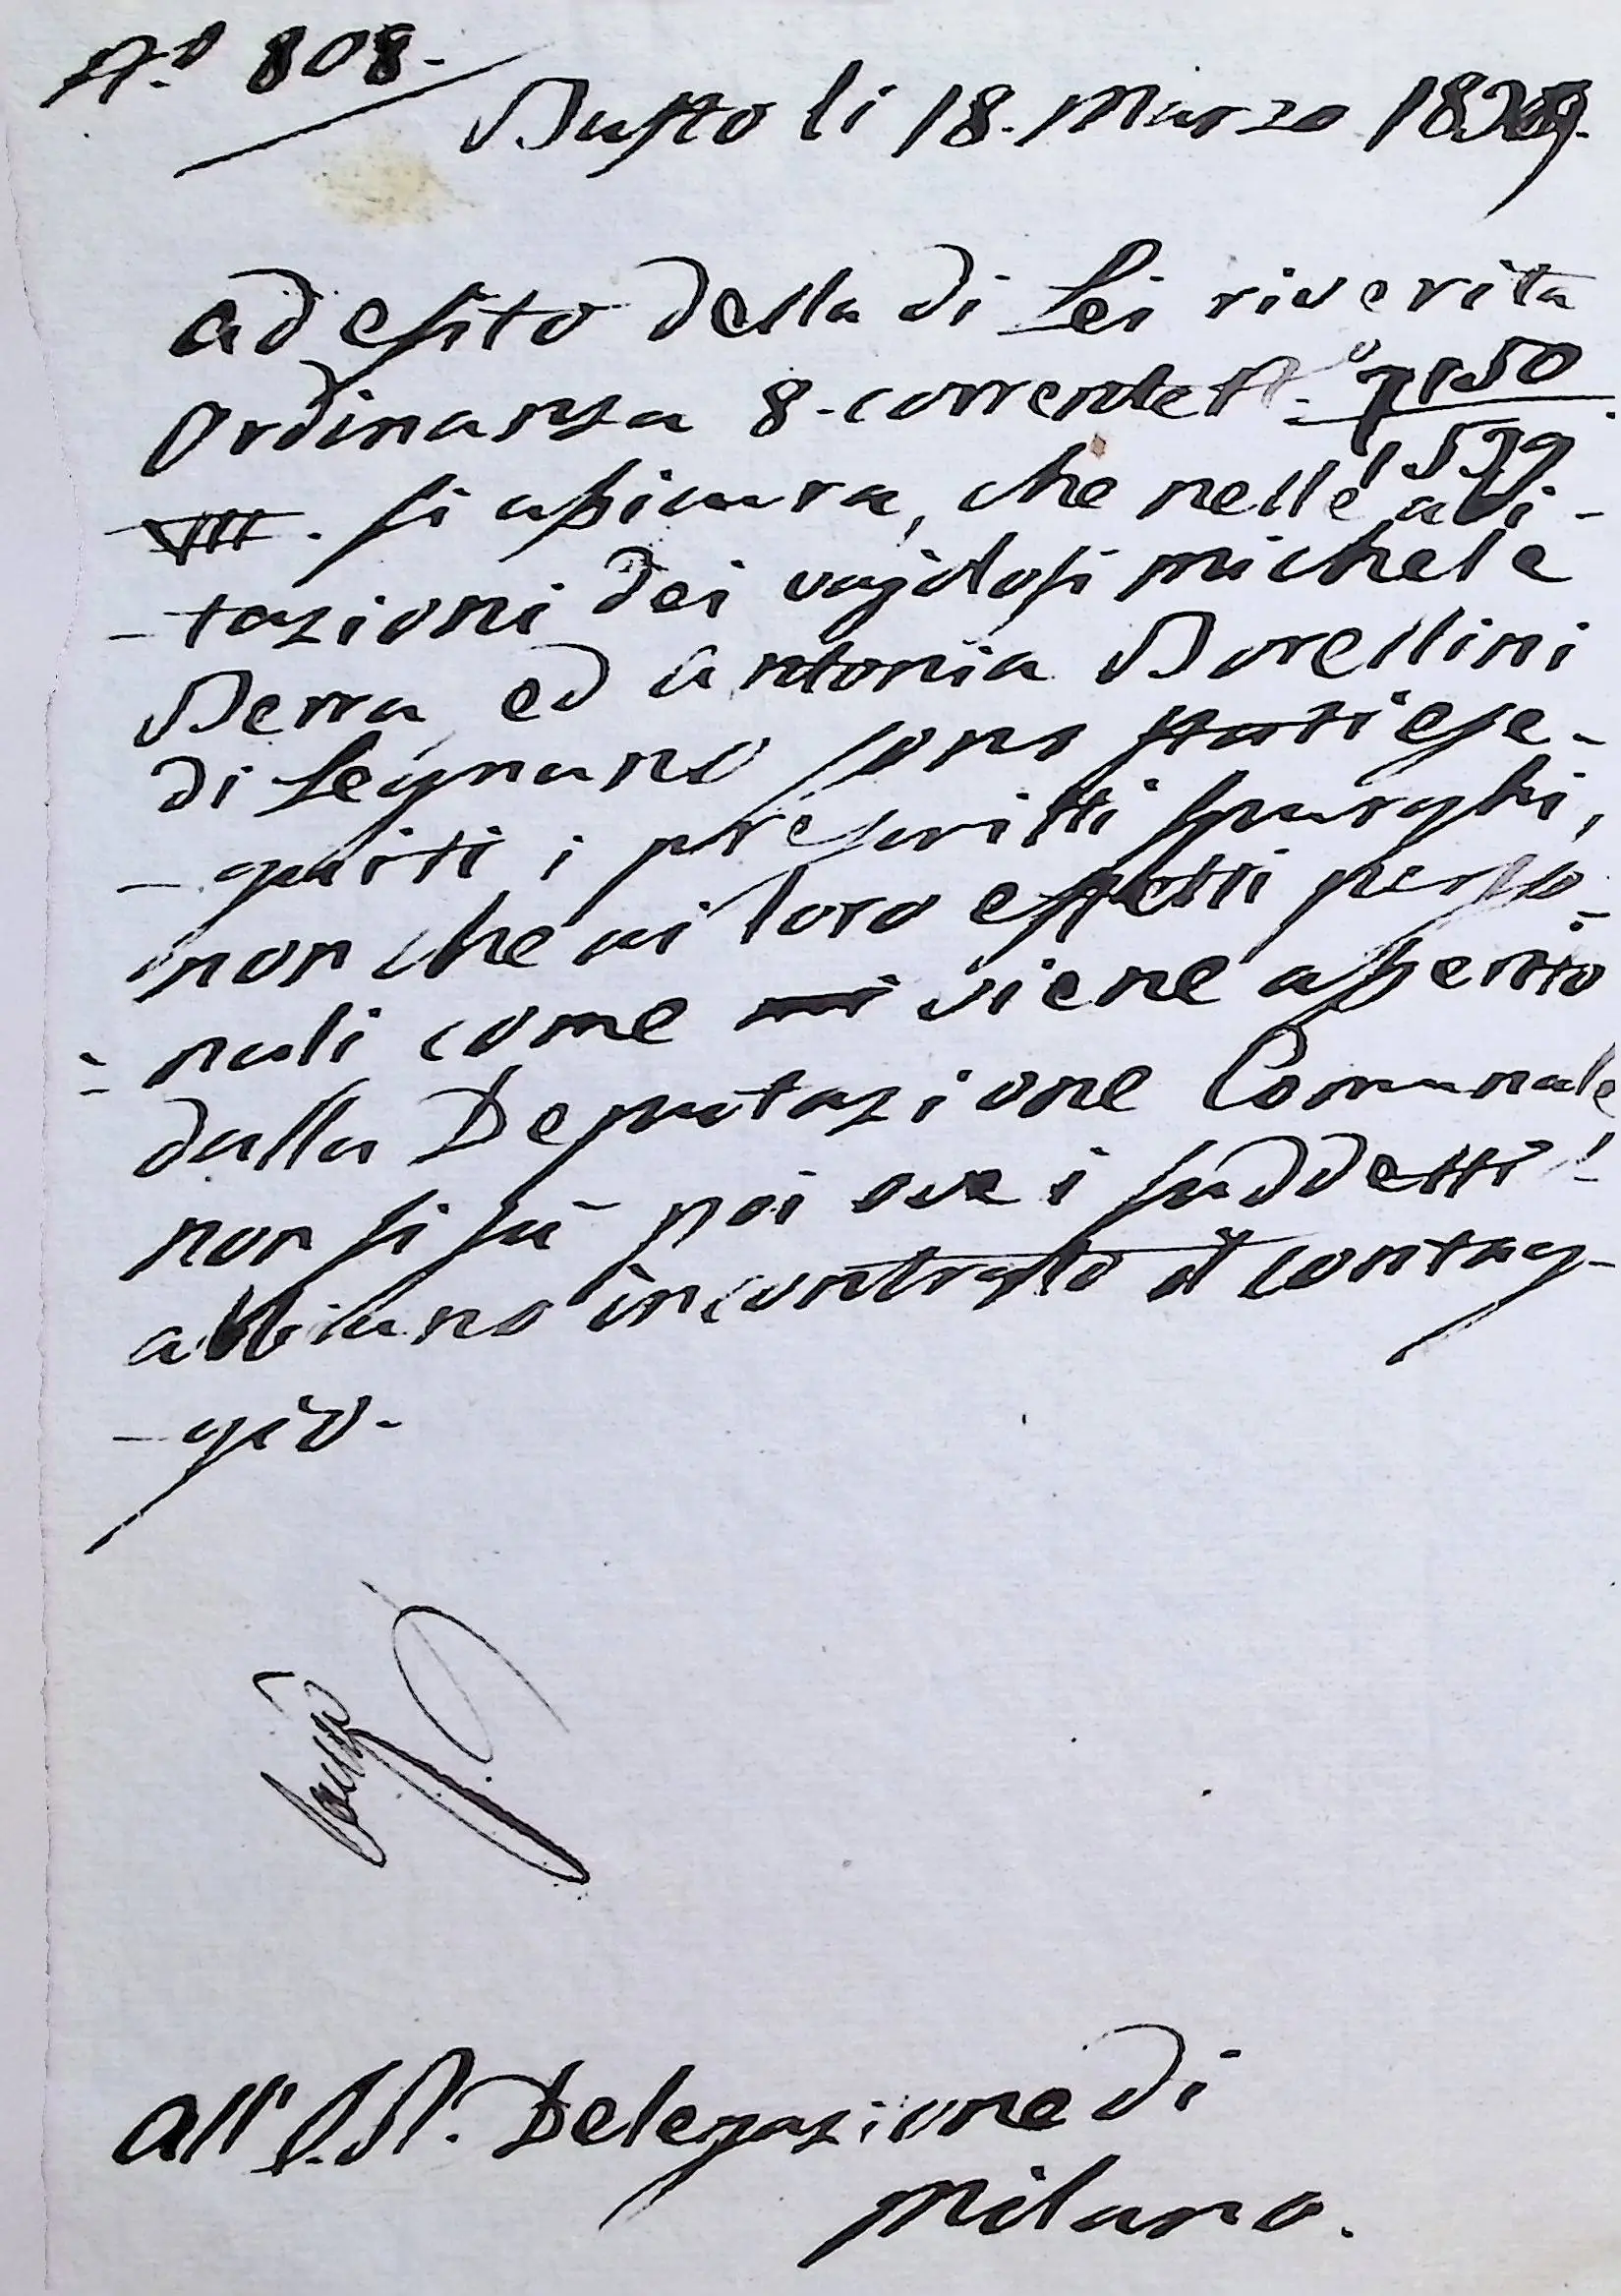 N.o 808.
Busto li 18. Marzo 1829.
Ad esito della di Lei riverita
Ordinanza 8. corrente N.o 7150
1539
VIII. si assicura, che nelle abi-
-tazioni dei vajolosi Michele
Berra ed Antonia Borellini
di Legnano sono stati ese-
-guiti i prescritti spurghi,
non che ai loro effetti perso-
-nali come viene asserito
dalla Deputazione Comunale
non si sà poi ove i suddetti
abbiano incontrato il contag-
-gio.
All' I. R. Delegazione di
Milano.